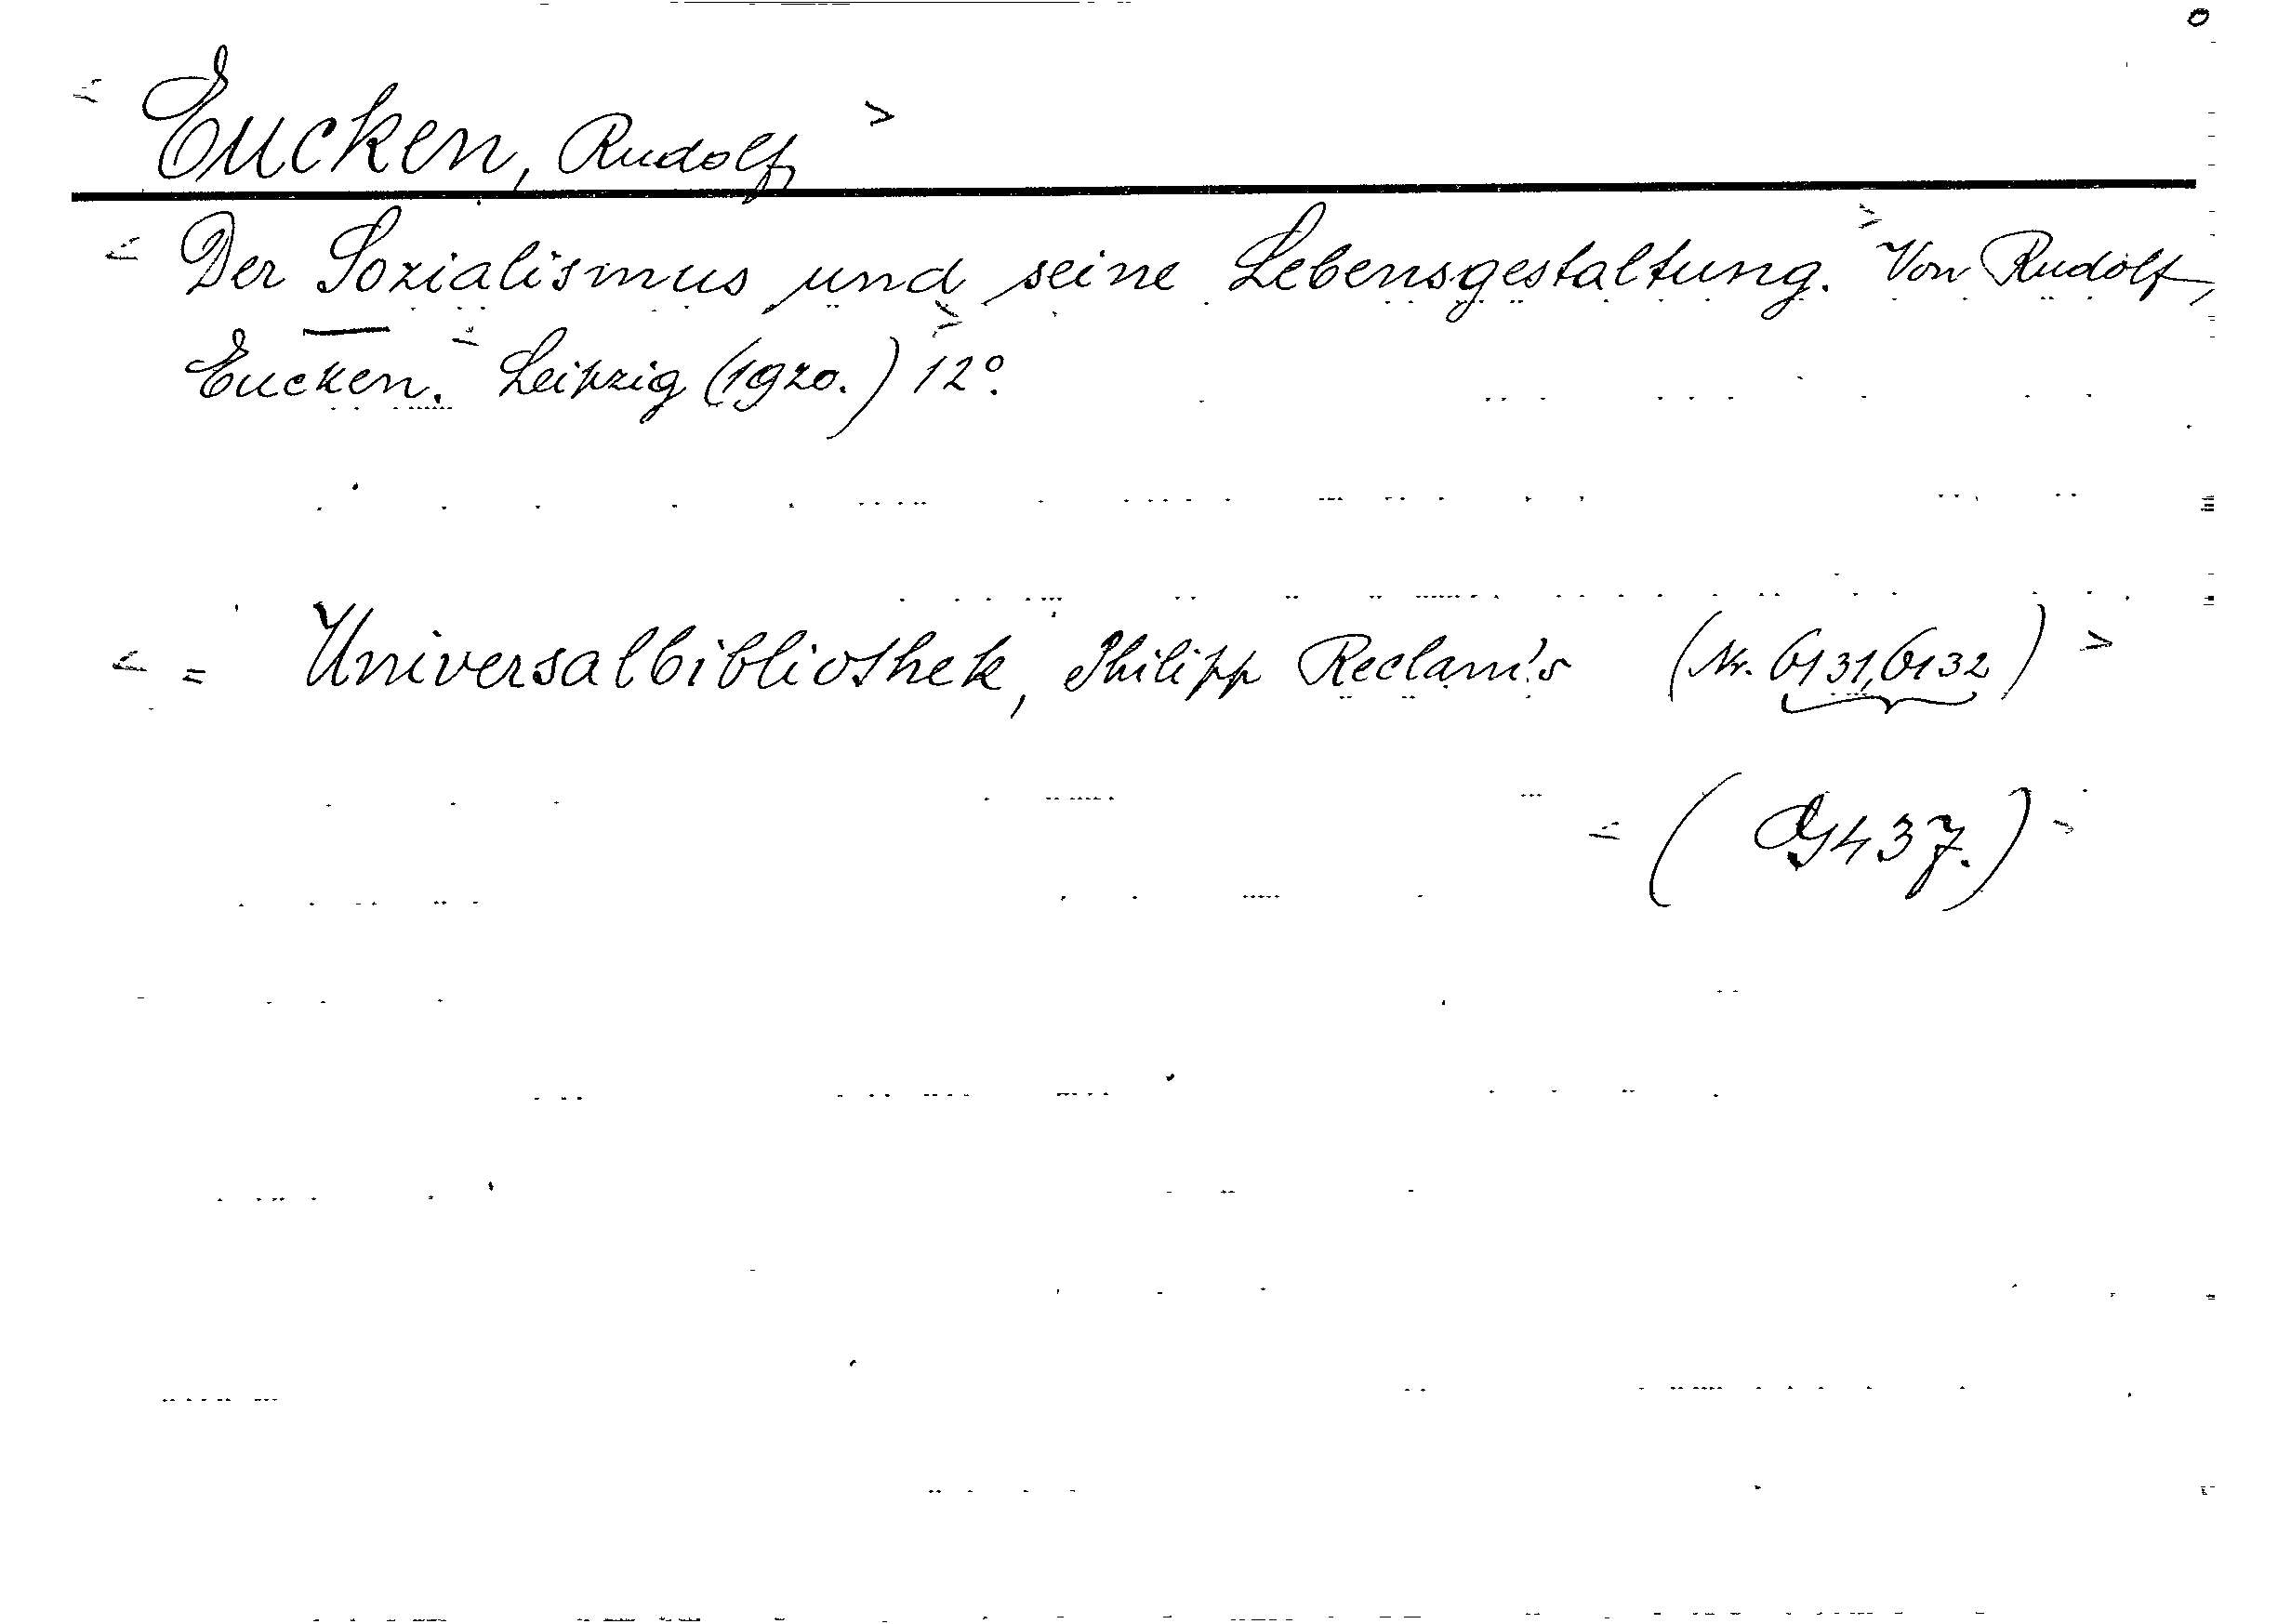 < Eucken, Rudolf >
< Der Sozialismus und seine Lebensgestaltung. > Von Rudolf
Eucken. < Leipzig (1920.) > 12º.
< = Universalbibliothek, Philipp Reclam's (Nr. 6131,6132) >
< ( 437.) >